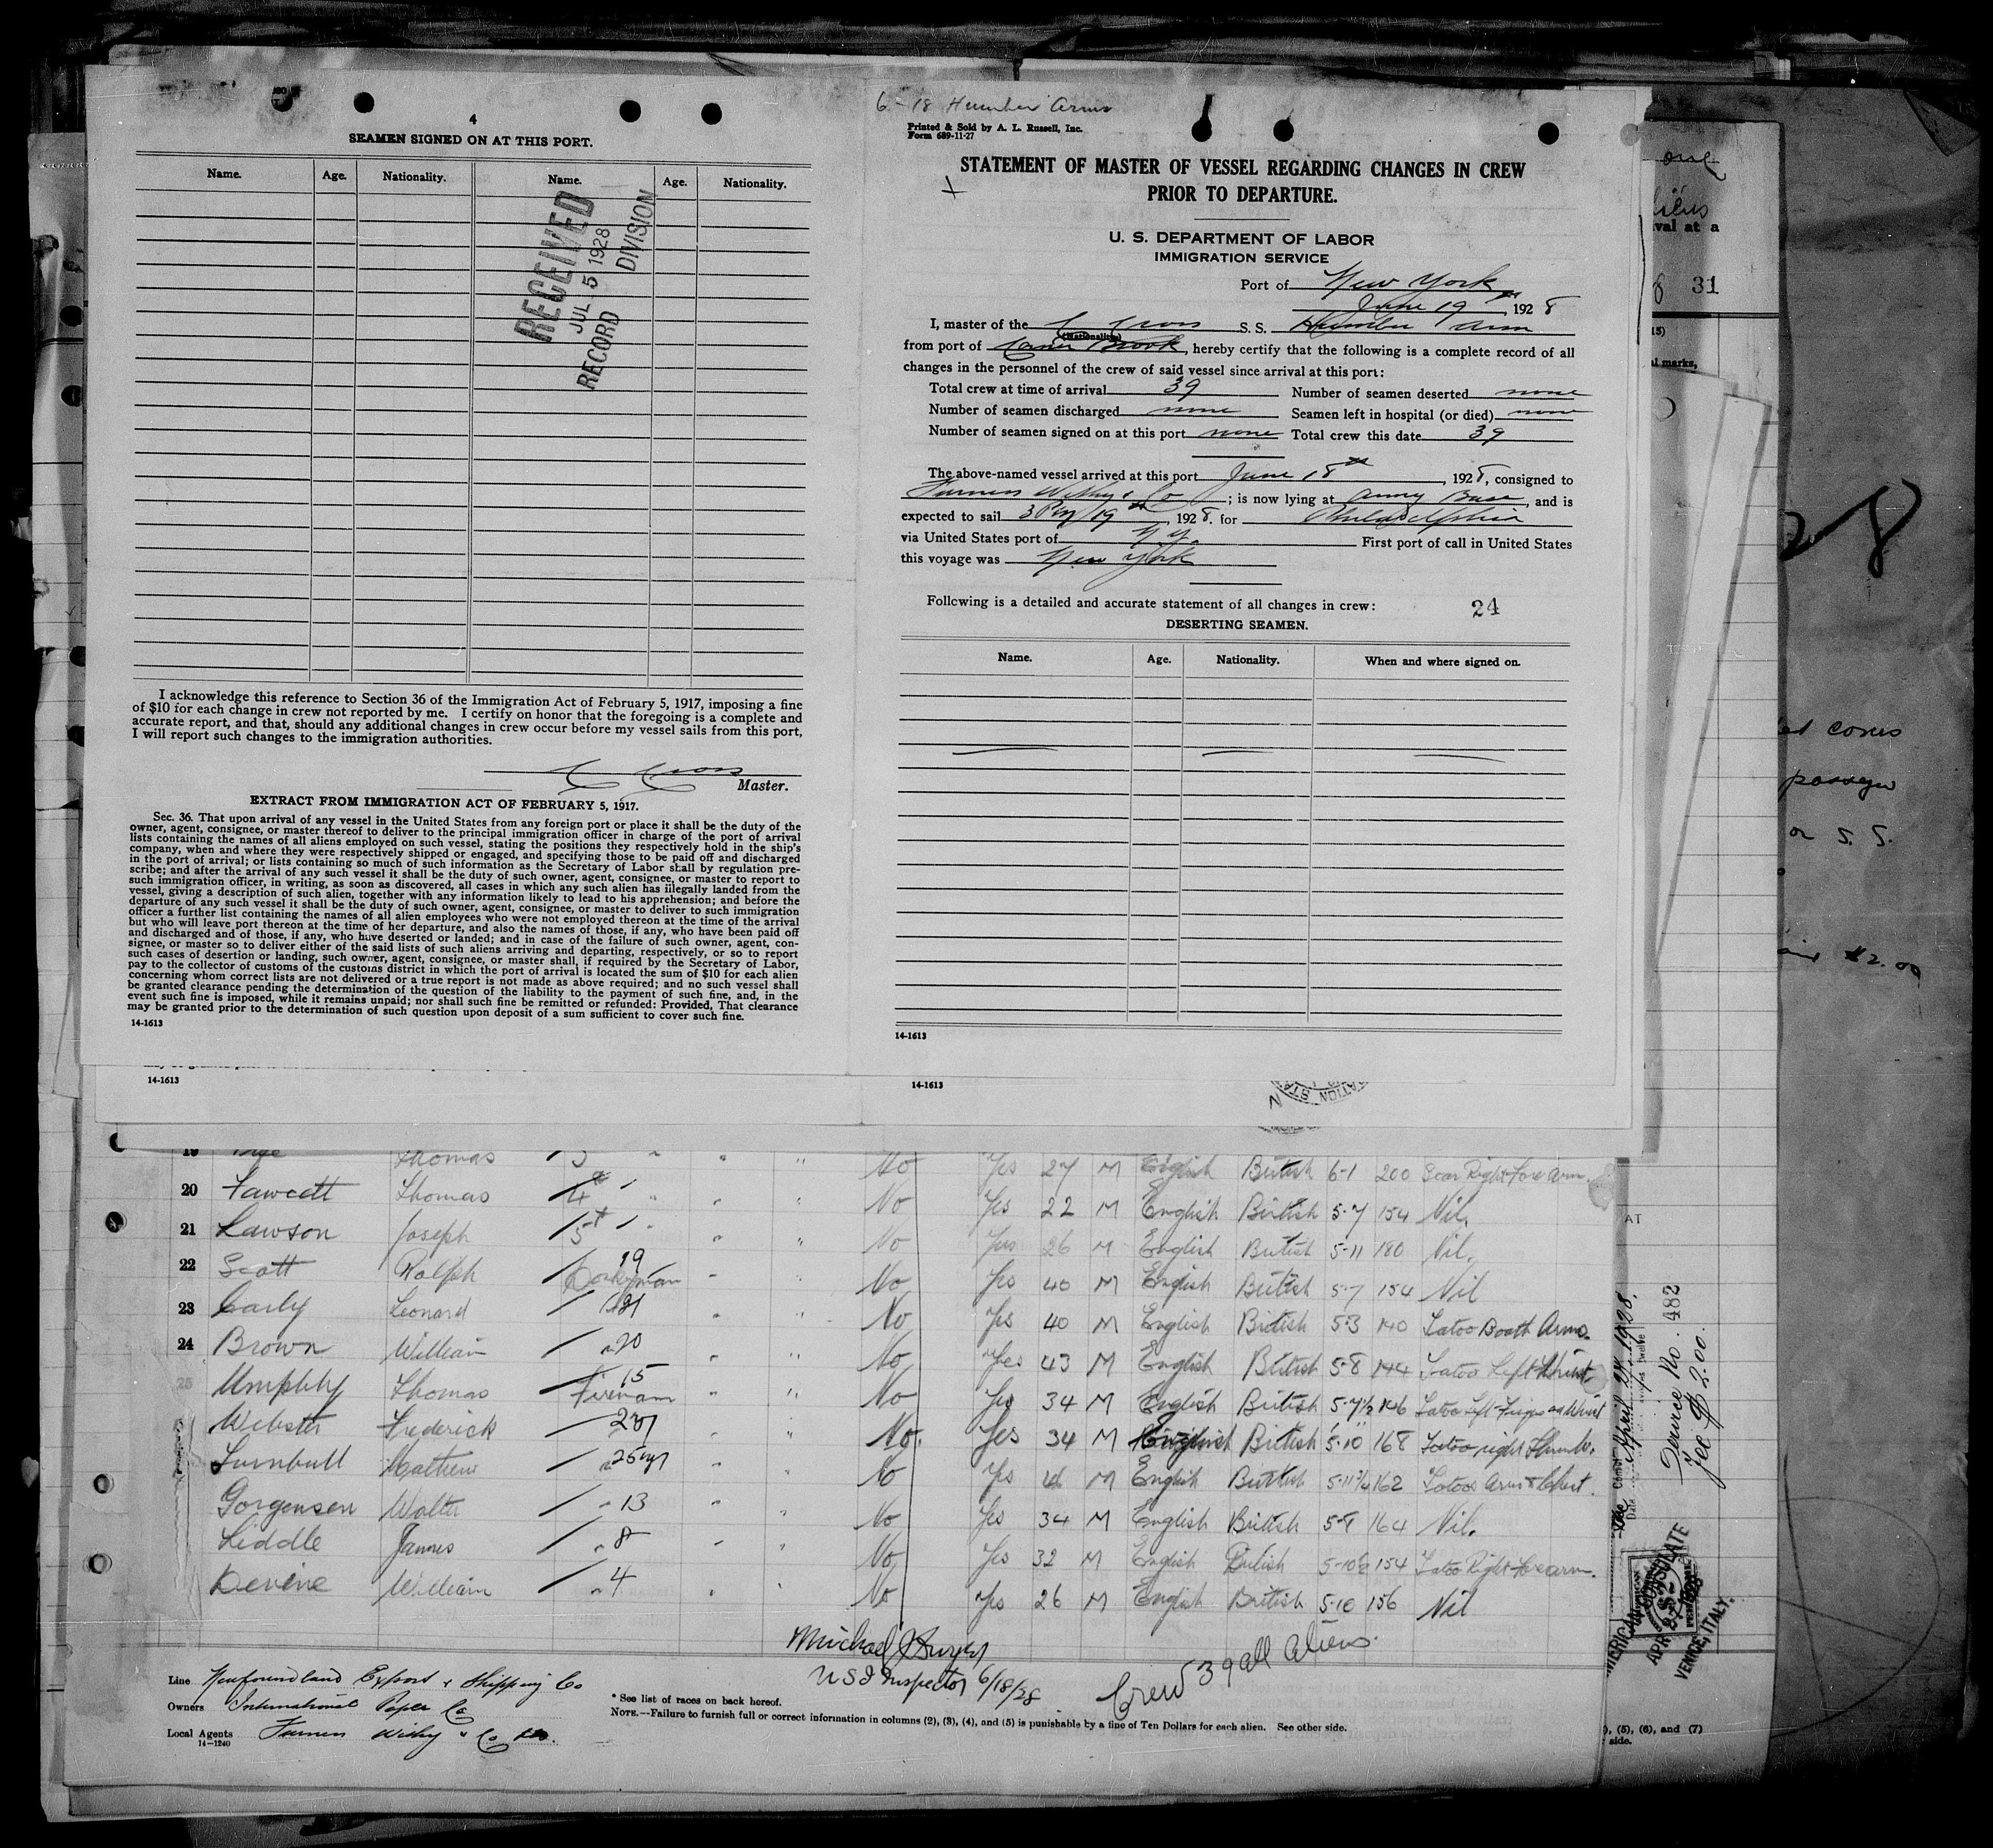 4
SEAMEN SIGNED ON AT THIS PORT.
Name. Age. Nationality. Name. Age. Nationality.
RECEIVED
JUL 5 1928
RECORD DIVISION
I acknowledge this reference to Section 36 of the Immigration Act of February 5, 1917, imposing a fine
of $10 for each change in crew not reported by me. I certify on honor that the foregoing is a complete and
accurate report, and that, should any additional changes in crew occur before my vessel sails from this port,
I will report such changes to the immigration authorities.
Master.
EXTRACT FROM IMMIGRATION ACT OF FEBRUARY 5, 1917.
Sec. 36. That upon arrival of any vessel in the United States from any foreign port or place it shall be the duty of the
owner, agent, consignee, or master thereof to deliver to the principal immigration officer in charge of the port of arrival
lists containing the names of all aliens employed on such vessel, stating the positions they respectively hold in the ship's
company, when and where they were respectively shipped or engaged, and specifying those to be paid off and discharged
in the port of arrival; or lists containing so much of such information as the Secretary of Labor shall by regulation pre-
scribe; and after the arrival of any such vessel it shall be the duty of such owner, agent, consignee, or master to report to
such immigration officer, in writing, as soon as discovered, all cases in which any such alien has illegally landed from the
vessel, giving a description of such alien, together with any information likely to lead to his apprehension; and before the
departure of any such vessel it shall be the duty of such owner, agent, consignee, or master to deliver to such immigration
officer a further list containing the names of all alien employees who were not employed thereon at the time of the arrival
but who will leave port thereon at the time of her departure, and also the names of those, if any, who have been paid off
and discharged and of those, if any, who have deserted or landed; and in case of the failure of such owner, agent, con-
signee, or master so to deliver either of the said lists of such aliens arriving and departing, respectively, or so to report
such cases of desertion or landing, such owner, agent, consignee, or master shall, if required by the Secretary of Labor,
pay to the collector of customs of the customs district in which the port of arrival is located the sum of $10 for each alien
concerning whom correct lists are not delivered or a true report is not made as above required; and no such vessel shall
be granted clearance pending the determination of the question of the liability to the payment of such fine, and, in the
event such fine is imposed, while it remains unpaid; nor shall such fine be remitted or refunded: Provided, That clearance
may be granted prior to the determination of such question upon deposit of a sum sufficient to cover such fine.
14-1613
14-1613
6-18 Humber Arms
Printed & Sold by A. L. Russell, Inc.
Form 689-11-27
STATEMENT OF MASTER OF VESSEL REGARDING CHANGES IN CREW
PRIOR TO DEPARTURE.
U. S. DEPARTMENT OF LABOR
IMMIGRATION SERVICE
Port of New York
June 19th, 1928
I, master of the S. S. Humber Arm
(Nationality)
from port of Corner Brook, hereby certify that the following is a complete record of all
changes in the personnel of the crew of said vessel since arrival at this port:
Total crew at time of arrival 39 Number of seamen deserted none
Number of seamen discharged none Seamen left in hospital (or died) none
Number of seamen signed on at this port none Total crew this date 39
The above-named vessel arrived at this port June 18th, 1928, consigned to
Furness Withy & Co; is now lying at Army Base, and is
expected to sail 3 PM 19th, 1928. for Philadelphia
via United States port of N.Y. First port of call in United States
this voyage was New York
Following is a detailed and accurate statement of all changes in crew: 24
DESERTING SEAMEN.
Name. Age. Nationality. When and where signed on.
14-1613
14-1613
19 Thomas 3 " " " No Yes 27 M English British 6-1 200 Scar Right Forearm.
20 Fawcett Thomas 4th " " " No Yes 22 M English British 5-7 154 Nil.
21 Lawson Joseph 5th " " " No Yes 26 M English British 5-11 180 Nil.
22 Scott Ralph 19 Donkeyman " " No Yes 40 M English British 5-7 154 Nil
23 Carly Leonard 21 " " No Yes 40 M English British 5-3 140 Tatoo Booth Arms.
24 Brown William " 20 " " No Yes 43 M English British 5-8 144 Tatoo Left Wrist
25 Umphly Thomas 15 Fireman " " No Yes 34 M English British 5-7½ 146 Tatoo Left Finger and Wrist
Webster Frederick " " No. Yes 34 M English British 5-10 168 Tatoo right Thumb.
Turnbull Mathew " 25 " " No Yes M English British 5-11¾ 162 Tatoo Arms & Chest.
Gorgensen Walter " 13 " " No Yes 34 M English British 5-8 164 Nil.
Liddle James " 8 " " No Yes 32 M English British 5-10½ 154 Tatoo Right Forearm.
Devine William " 4 " " No Yes 26 M English British 5-10 156 Nil
Michael J Dwyer
U S I Inspector 6/18/28
Crew 39 all aliens.
Line Newfoundland Export & Shipping Co
Owners International Paper Co
Local Agents Furness Withy & Co Ltd.
14-1240
* See list of races on back hereof.
NOTE.—Failure to furnish full or correct information in columns (2), (3), (4), and (5) is punishable by a fine of Ten Dollars for each alien. See other side.
val at a
31
15)
l marks,
28
passage
or S. S.
$2.00
AT
Date April 27 1928.
Service No. 482
Fee $2.00.
AMERICAN CONSULATE
APR 27 1928
VENICE, ITALY.
), (5), (6), and (7)
side.